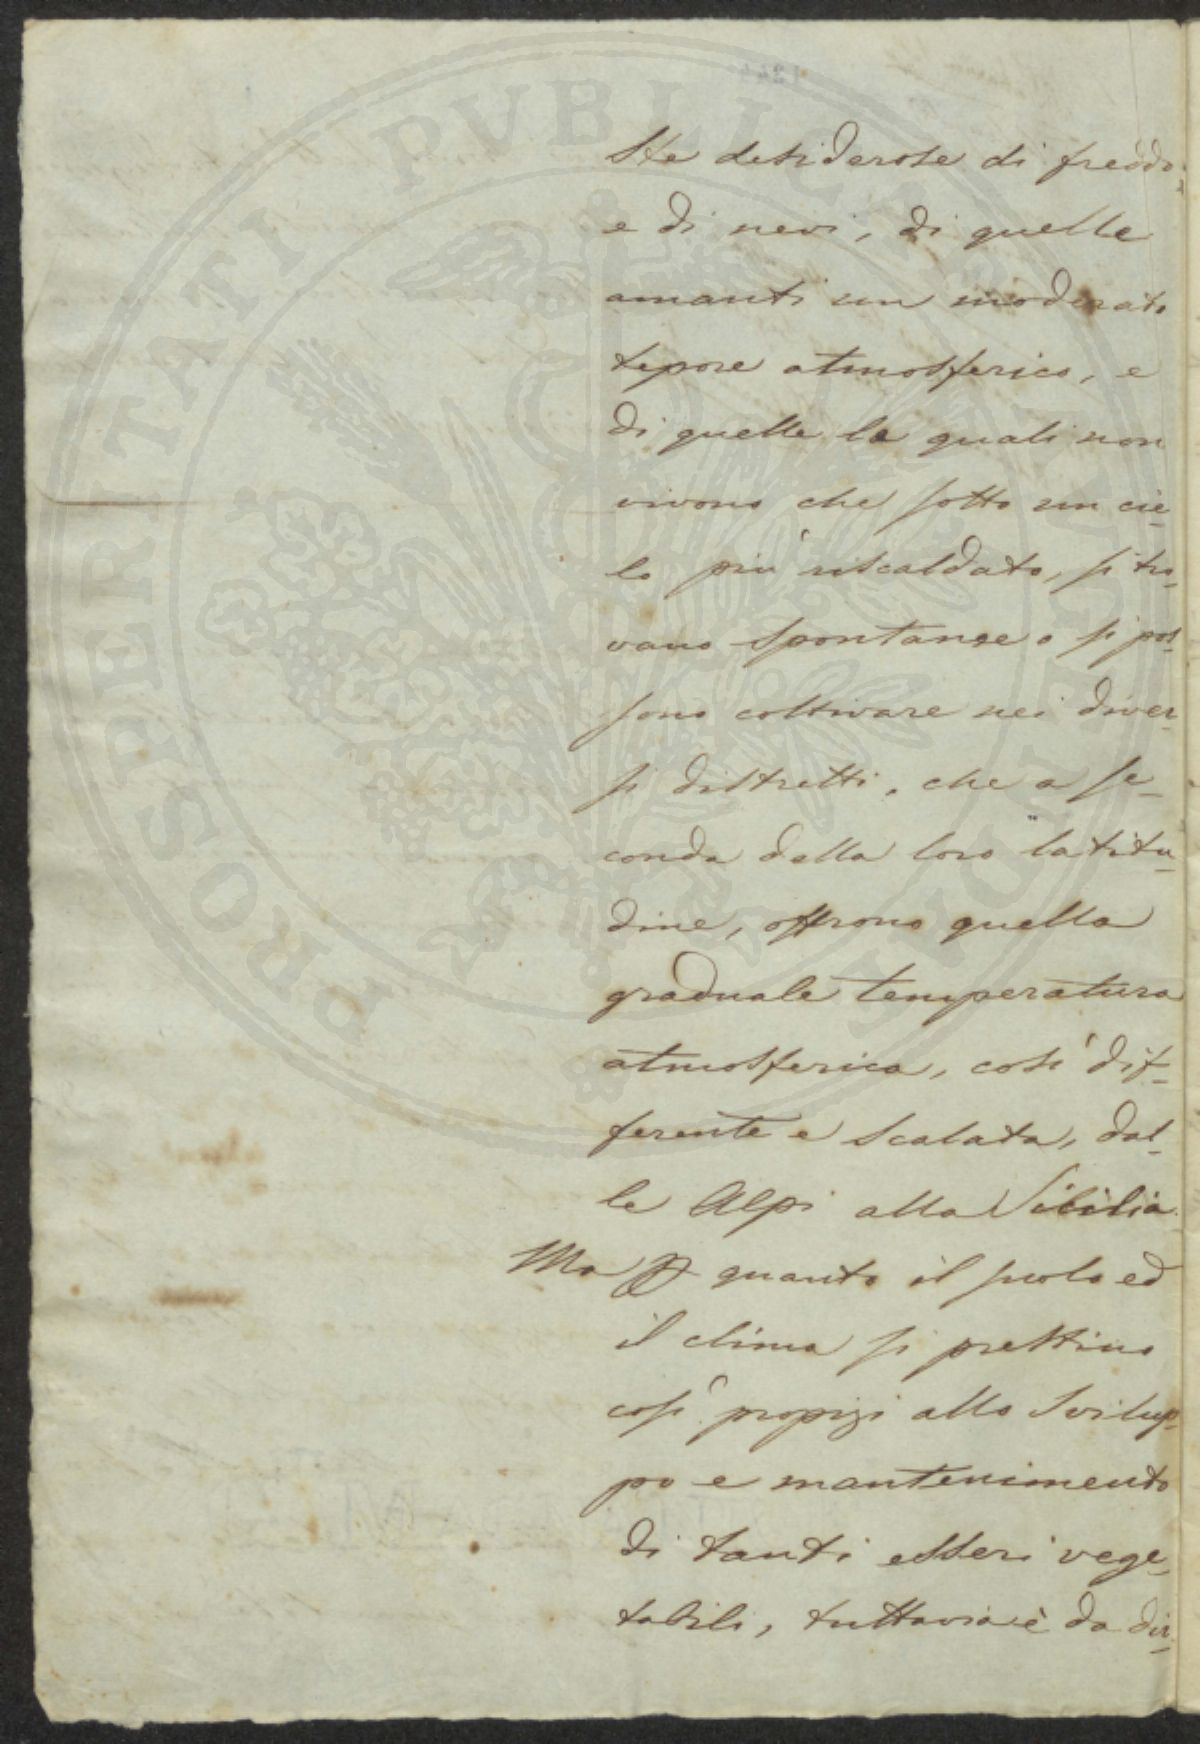 PROSPERITATI PVBLICAE AVGENDAE
ste desiderose di freddo,
e di nevi, di quelle
amanti un moderato
tepore atmosferico, e
di quelle le quali non
vivono che sotto un cie-
lo più riscaldato, si tro-
vano spontanee o si pos-
sono coltivare nei diver-
si distretti, che a se-
conda della loro latitu-
dine, offrono quella
graduale temperatura
atmosferica, così dif-
ferente e scalata, dal-
le Alpi alla Sicilia.
Ma quanto il suolo ed
il clima si prestino
così propizi allo svilup-
po e mantenimento
di tanti esseri vege-
tabili, tuttavia è da dir-